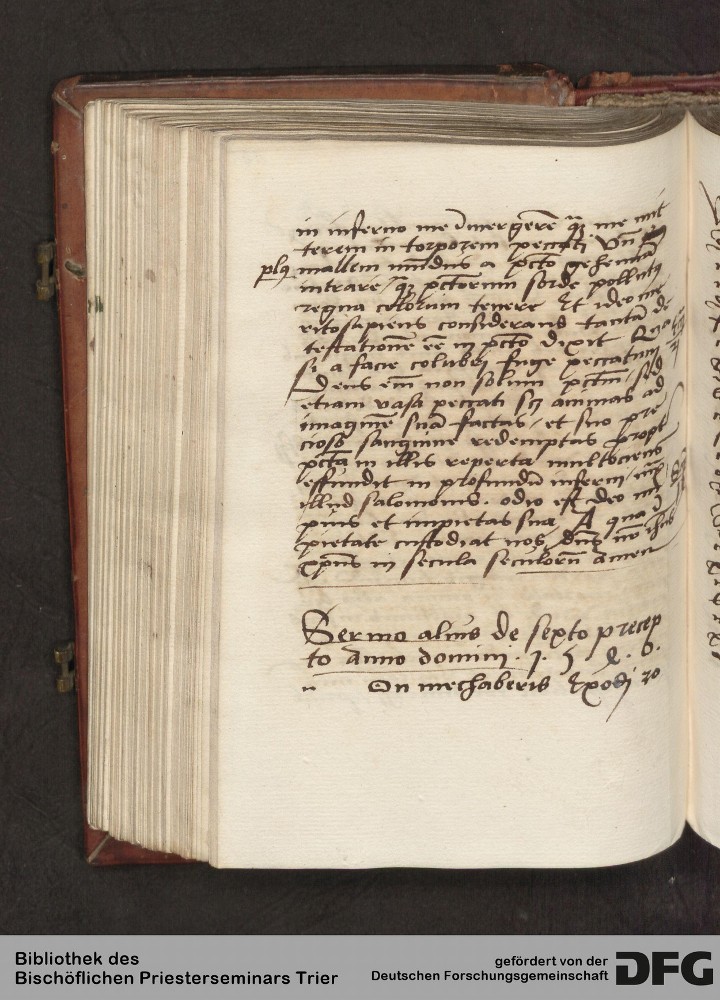 in inferno me i͂mergere͂ qꝫ me mit
terem in torporem peccati Vn͂
plꝰ mallem mu͂dus a pc͂to gehenna͂
intrare / qꝫ pc͂torum sorde pollutꝰ
regna celorum tenere Et ideo me
ritosapiens considerans tanta͂ de
testatione͂ e͂e in pc͂to dixit Quasi
si a facie colubri fuge peccatum
Deus em͂ non solum pc͂tm͂ / sed
etiam vasa peccati scꝫ animas ad
imagine͂ sua͂ factas / et suo pre
cioso sanguine redemptas propt
pc͂ta in illis reperta multociens
effundit in profundu͂ inferni /
illud salomonis. odio est deo im
pius et impietas sua A qua
pietate custodiat nos dn͂s no͂ ihus
xpu͂s in secula seculoru͂ amen
Sermo alius de sexto precep
to anno domini .1.5.
n On mechaberis Exodi 20
Bibliothek des
Bischöflichen Priesterseminars Trier
gefördert von der
Deutschen Forschungsgemeinschaft
DFG